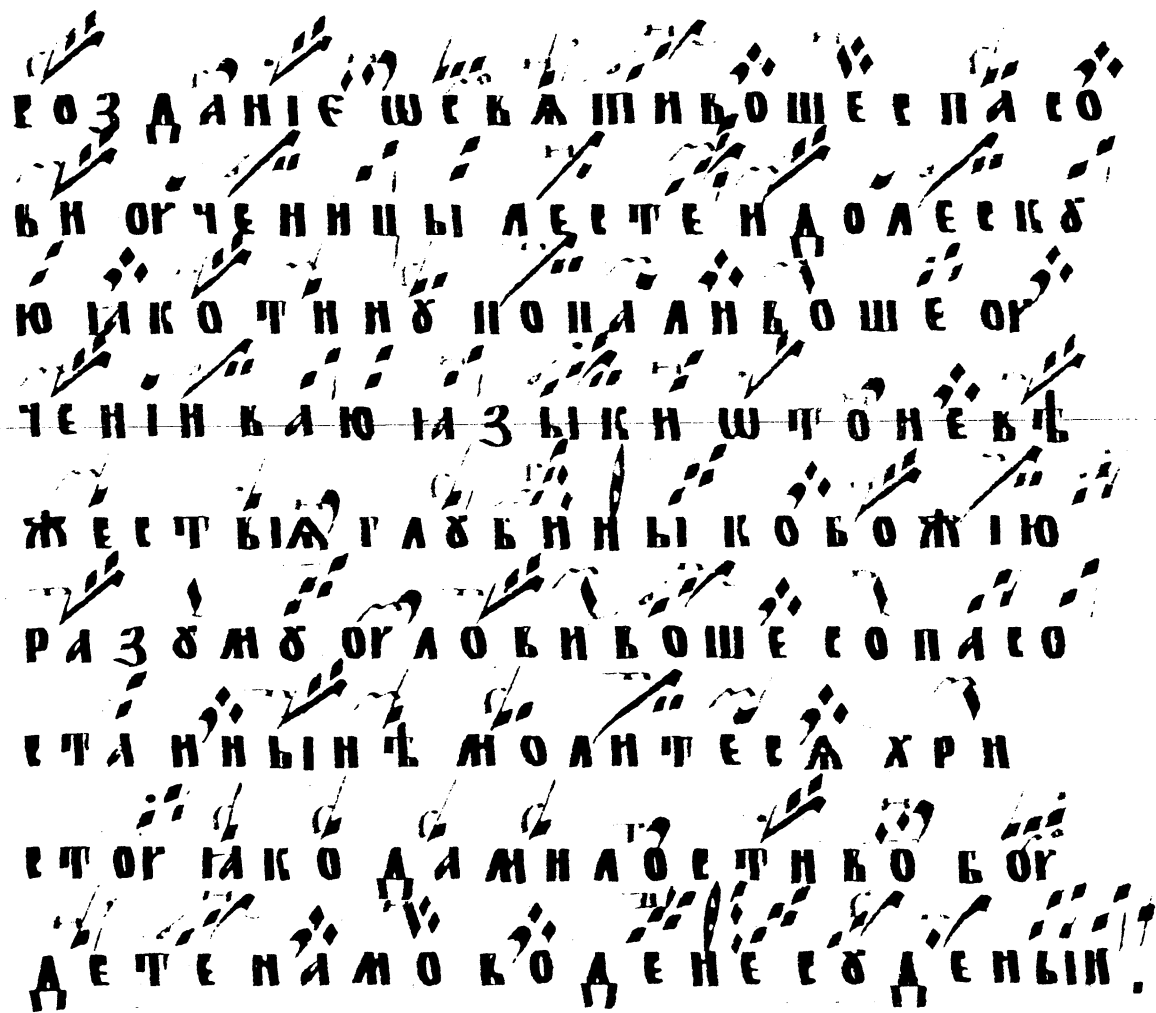 созданіе ѡсвѧтивоше спасо
ви оученици лестеи долеску
ю ꙗкотину попаливоше оу
ченіи ваю ꙗзыки ѡтоневѣ
жествіѧ глубинны ко божію
разуму оуловивоше со пасо
стании нынѣ молитесѧ хри
стоу ꙗко да милостиво боу
дете намо во дене суденыи.